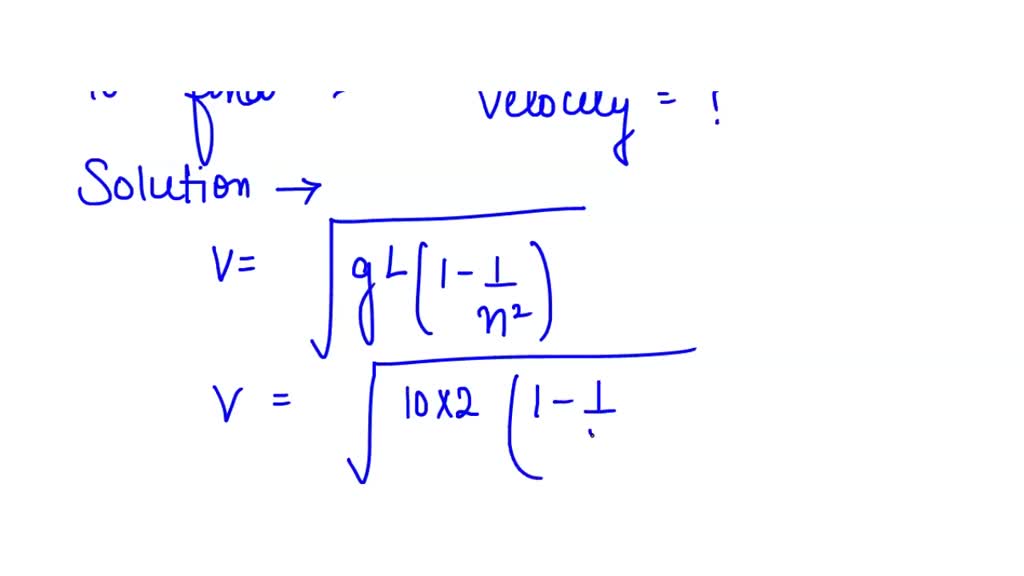 velocity = ?
Solution →
V = √(gL(1 - 1/n²))
V = √(10×2 (1 - 1/